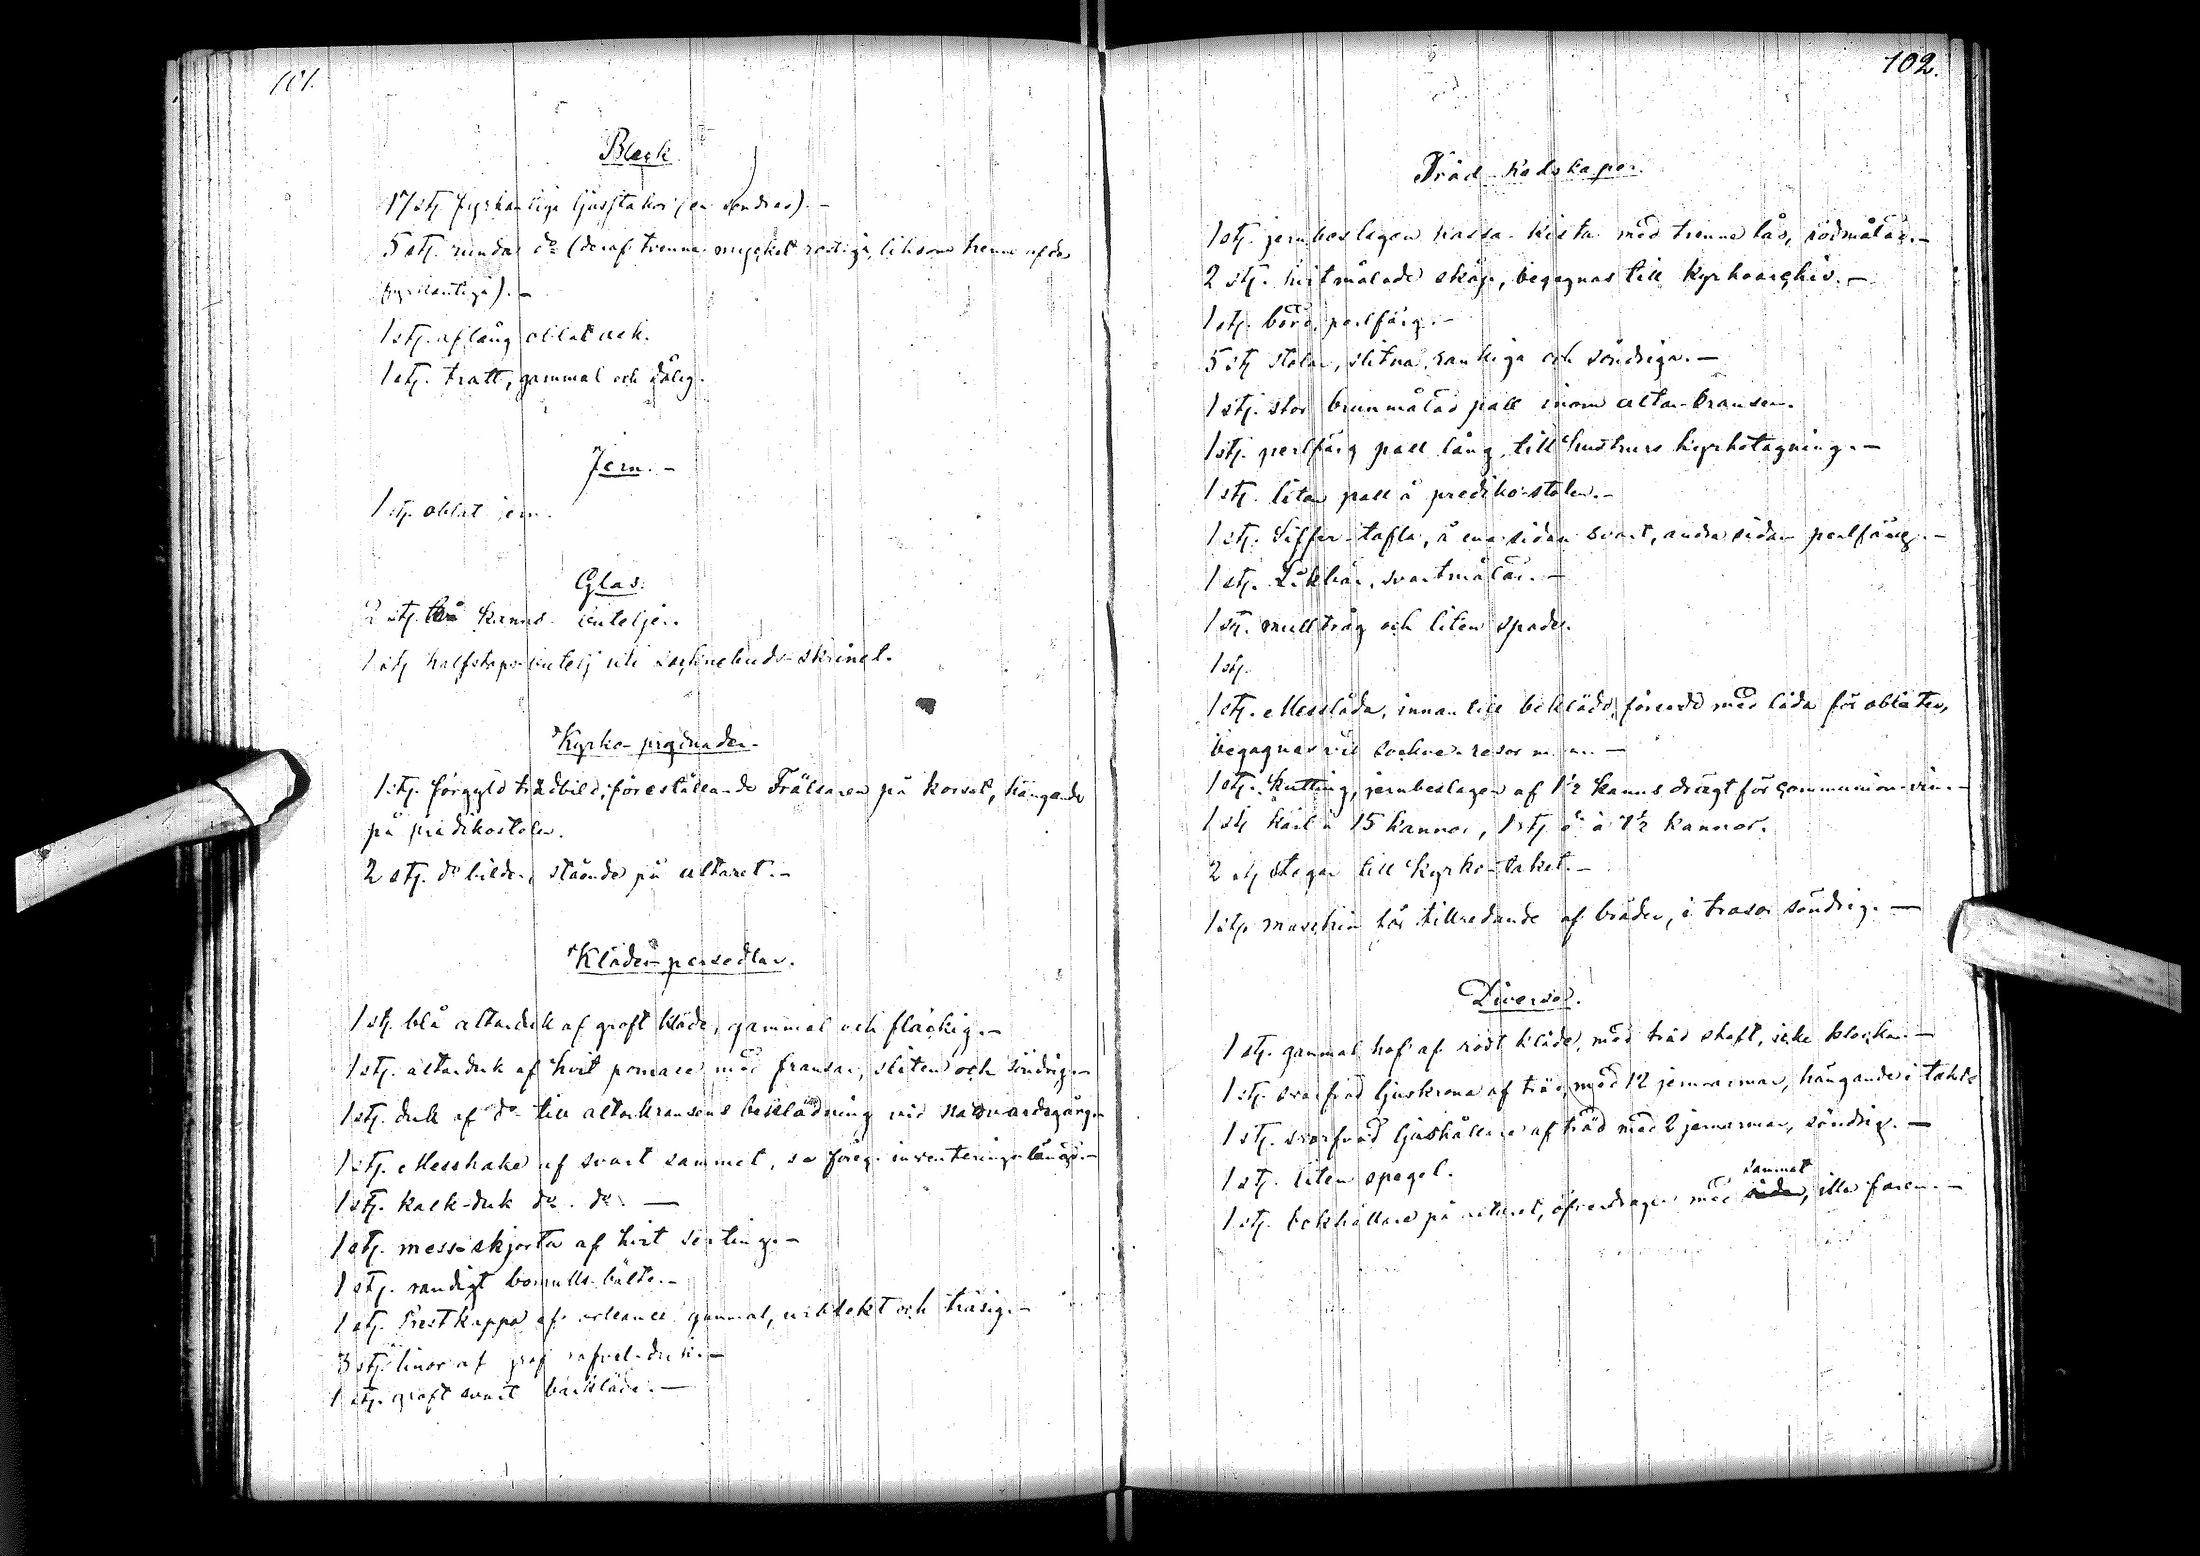 101.
Bleck
17 stj. fyrkantiga ljusstakar (en söndrad). -
5 stj. runda do (deraf trenne mycket rostiga, liksom trenne af de
fyrkantiga). -
1 stj. aflång oblat ask.
1 stj. tratt, gammal och dålig.
Jern. -
1 stj. oblat jern.
Glas.
2 stj. två kanns buteljer.
1 stj. halfstops butelj uti sockenbuds-skrinet.
Kyrko-prydnader.
1 stj. förgyld trädbild, föreställande Frälsaren på korset, hängande
på predikostolen.
2 stj. do bilder, stående på altaret. -
Klädes-persedlar.
1 stj. blå altarduk af groft kläde, gammal och fläckig. -
1 stj. altarduk af hvit med fransar, sliten och söndrig. -
1 stj. duk af do till altarkransens beklädning vid nattvardsgång. -
1 stj. Messhake af svart sammet, se föreg. inventeringslängd. -
1 stj. kalk-duk do. do. —
1 stj. messeskjorta af hvit serting. -
1 stj. randigt bomulls bälte. -
1 stj. Prestkappa af orleance gammal, urblekt och trasig. -
3 stj. linor af grof
1 stj. groft svart bårkläde. —
102.
Träd-Redskaper.
1 stj. jernbeslagen kassa-kista med trenne lås, rödmålad. -
2 stj. hvitmålade skåp, begagnas till kyrkoarchiv. -
1 stj. bord, perlfärg. -
5 stj stolar, slitna, rankiga och söndriga. -
1 stj. stor brunmålad pall inom altar-kransen.
1 stj. perlfärg pall lång, till hustrurs kyrkotagning. -
1 stj. liten pall å predikostolen. -
1 stj. Siffer-tafla, å ena sidan svart, andra sidan perlfärg. -
1 stj. Likbår, svartmålad. -
1 stj. mulltråg och liten spade.
1 stj.
1 stj. Messlåda, innan till beklädd, försedd med låda för oblater,
begagnas vid sockne-resor m.m. —
1 stj. Kutting, jernbeslagen af 1 1/2 kanns drägt för communion-vin. -
1 stj kärl à 15 kannor, 1 stj do à 7 1/2 kannor.
2 stj stegar till kyrko-taket. -
1 stj. maschin för tillredande af bröder, i trasor söndrig. —
Diverse.
1 stj. gammal håf af rödt kläde, med träd skaft, icke klocka. —
1 stj. svarfvad ljuskrona af träd, med 12 jernarmar, hängande i taket
1 stj. svarfvad ljushållare af träd med 2 jernarmar, söndrig. —
1 stj. liten spegel.
1 stj. bokhållare på altaret, öfverdragen med siden, sammet illa faren. -